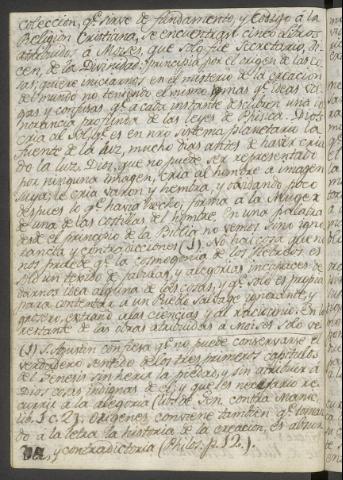 coleccion, qᵉ sirve de fundamento, y Codigo á la
Religion Cristiana, se encuentran cinco Libros
atribuidos á Moises, que solo fue Secretario, di-
cen, de la Divinidad. Principia por el origen de las co-
sas; quiere iniciarnos en el misterio de la creacion
del mundo no teniendo el mismo mas qᵉ ideas va-
gas y confusas qᵉ a cada instante descubren una ig-
norancia profunda de las leyes de Phisica. Dios
cria al Sol, qᵉ es en nrō sistema planetario la
fuente de la luz, mucho dias antes de haver cria-
do la luz. Dios, que no puede ser representado
por ninguna imagen, cria al hombre a imagen
suya; le cria varon y hembra, y olvidando poco
despues lo qᵉ havia hecho, forma a la Muger
de una de las costillas del hombre. En una palabra
desde el principio de la Biblia no vemos sino igno-
rancia y contradicciones (1). No hai cosa que no
nos pruebe qᵉ la cosmogonia de los Hebreos es
solo un tegido de fabulas, y alegorias incapaces de
darnos idea alguna de las cosas, y qᵉ solo es propia
para contentar a un Pueblo salvage ignorante, y
grosero, extraño a las ciencias y al raciocinio. En lo
restante de las obras atribuidas a Moises solo se
(1) S. Agustin confiesa qᵉ no puede conservarse el
verdadero sentido de los tres primeros capitulos
del Genesis sin herir la piedad, y sin atribuir a
Dios cosas indignas de el; y que es necesario re-
currir a la alegoria (lib. de Gen. contra Manic.
lib. 1 c. 2). Origenes conviene tambien qᵉ toman-
do a la letra la historia de la creacion, es absur-
da, y contradictoria (Philos. p. 12.).